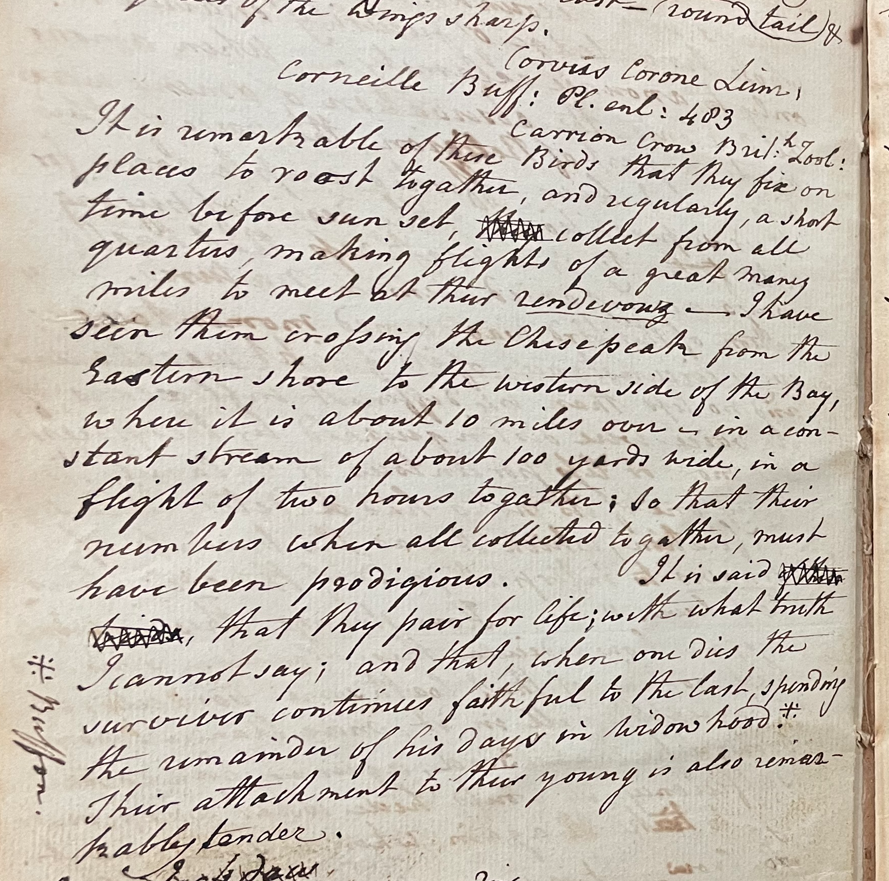 of the Wings sharp.
round tail &
Corvus Corone Linn,
Corneille Buff: Pl. enl: 483
Carrion Crow Brit:h Zool:
It is remarkable of these Birds that they fix on
places to roost togather, and regularly, a short
time before sun set, collect from all
quarters, making flights of a great many
miles to meet at their rendevouz — I have
seen them crossing the Chesepeak from the
Eastern shore to the western side of the Bay,
where it is about 10 miles over – in a con-
stant stream of about 100 yards wide, in a
flight of two hours togather; so that their
numbers when all collected togather, must
have been prodigious. It is said
, that they pair for life; with what truth
I cannot say; and that, when one dies the
surviver continues faithful to the last, spending
the remainder of his days in widowhood.⁜
Their attachment to their young is also remar-
kably tender.
⁜ Buffon.